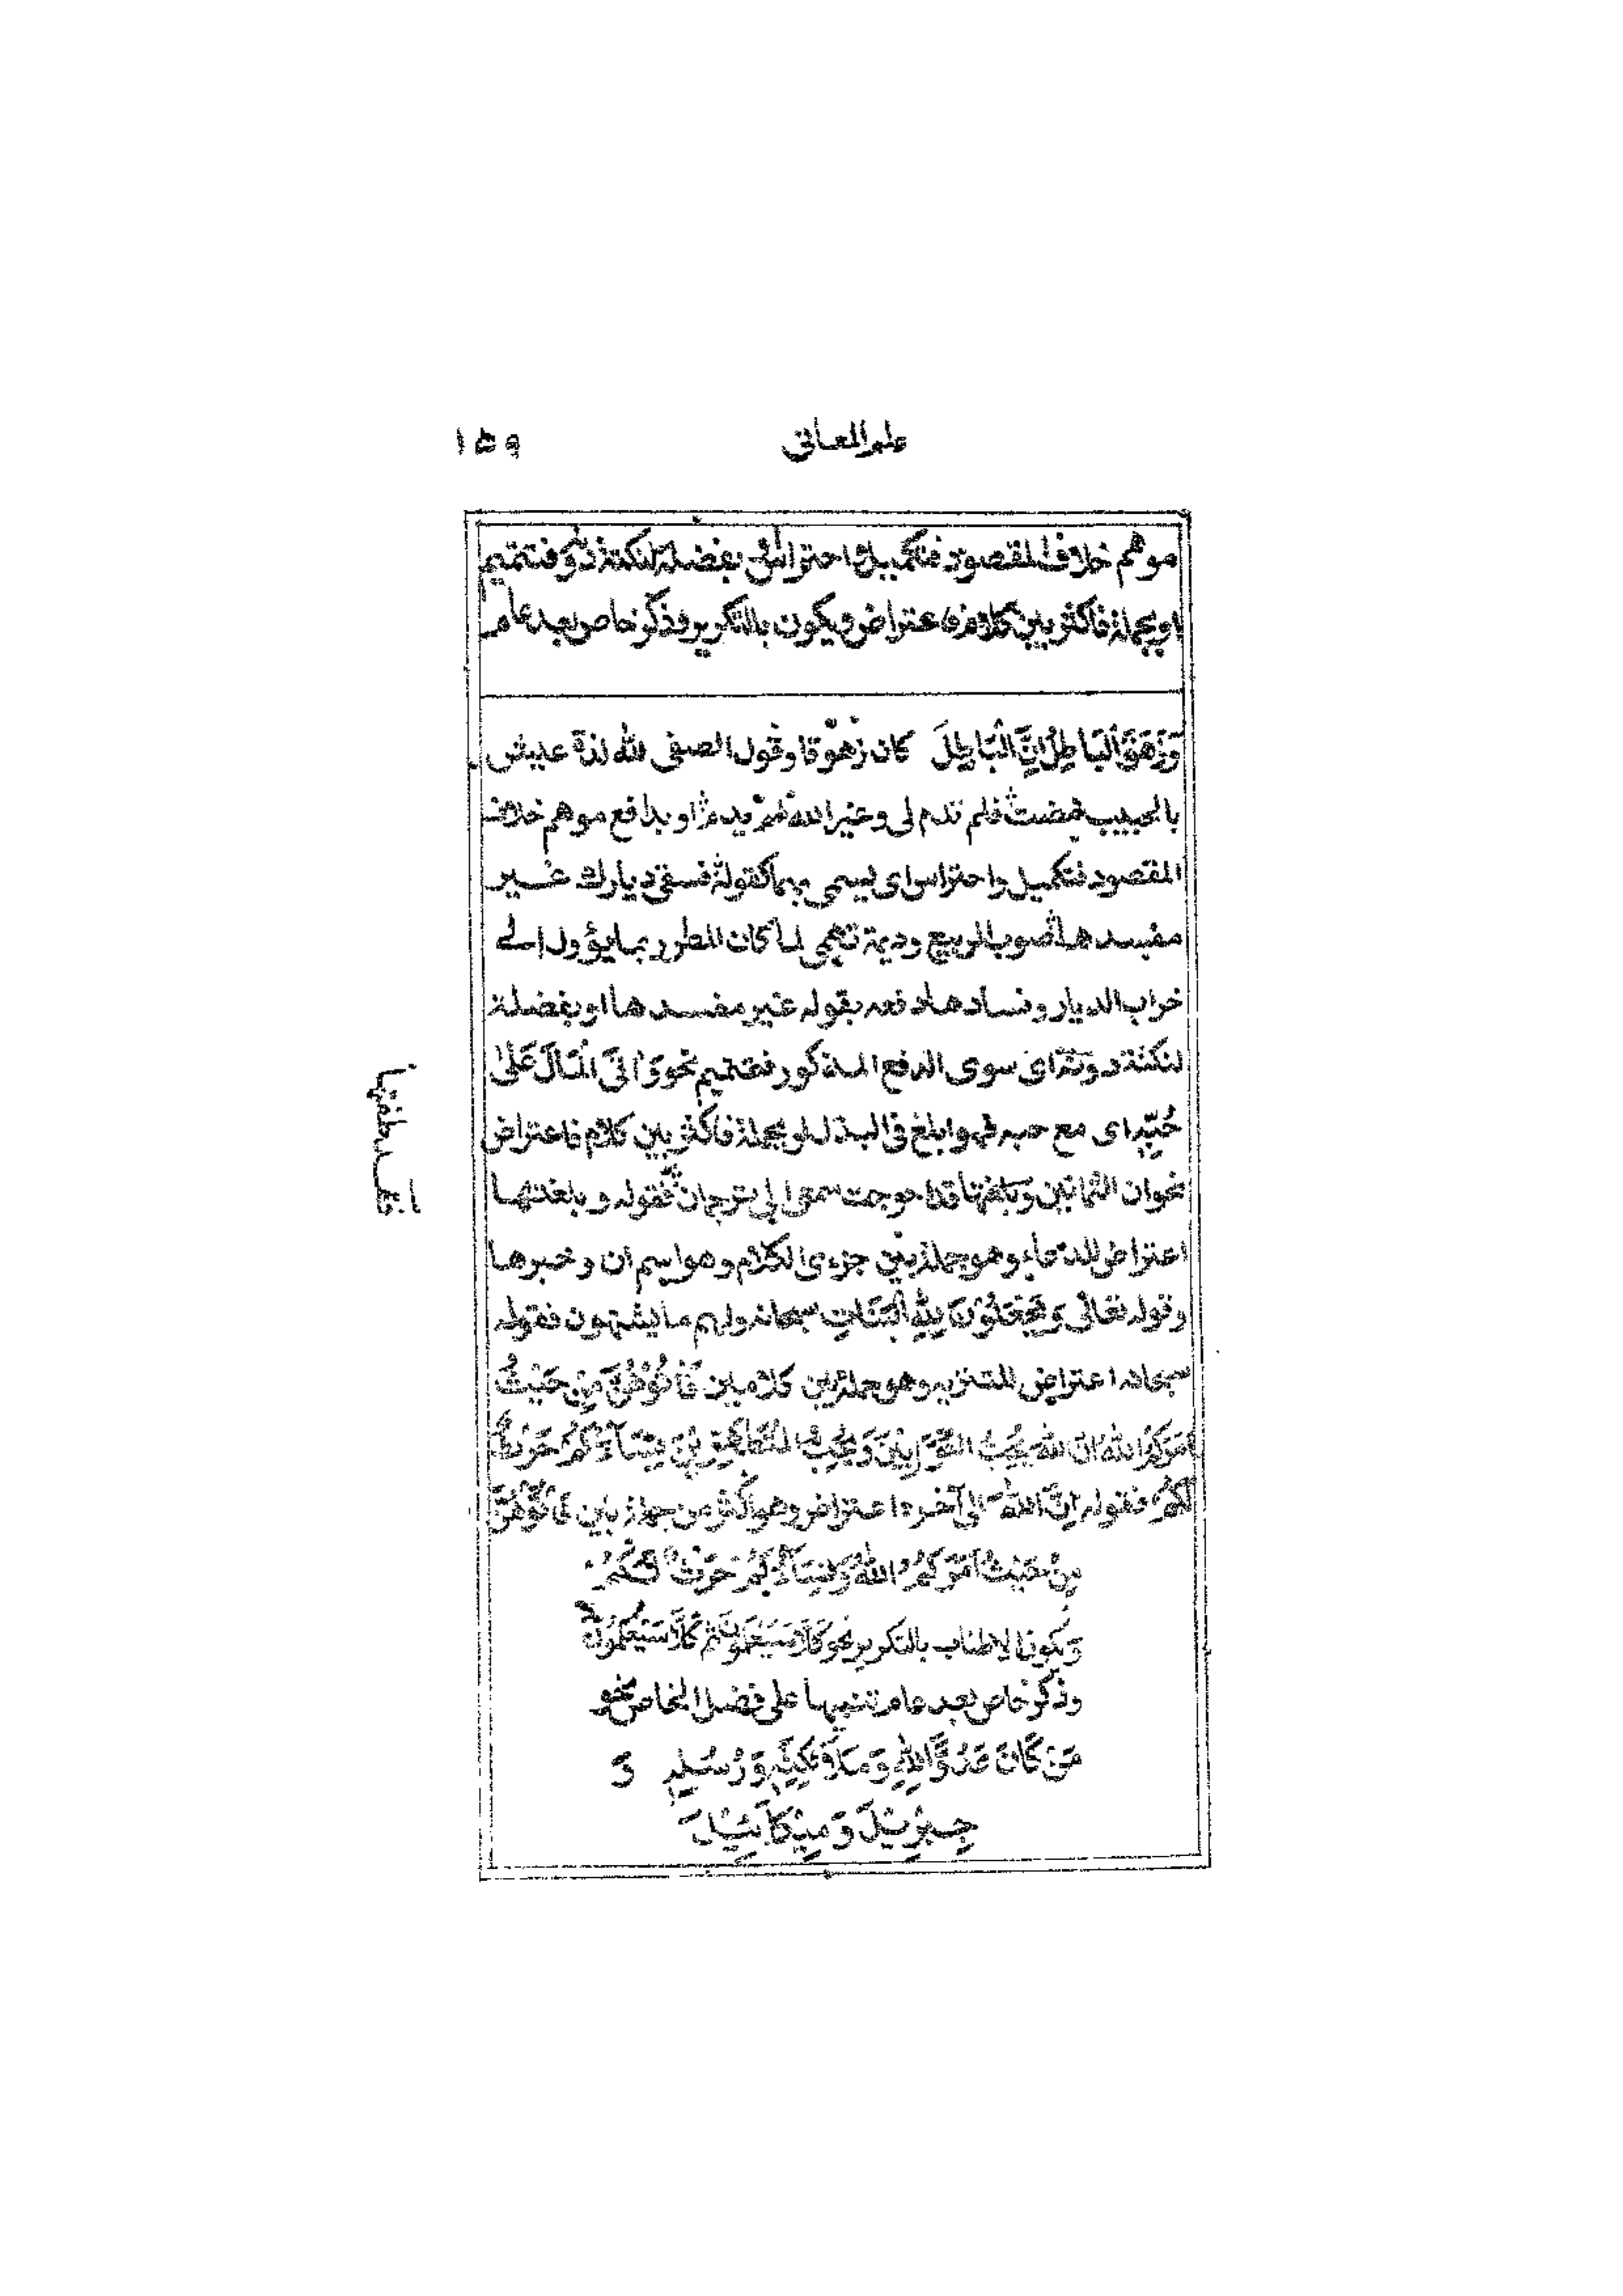 علم المعانى ١٥٩
موهم خلاف المقصود فتكميل واحتراس او بفضلة لنكتة دونه فتتميم
او بجملة فاكثر بين كلام فاعتراض ويكون بالتكرير وذكر خاص بعد عام
وَزَهَقَ الْبَاطِلُ اِنَّ الْبَاطِلَ كان زهوقا وقول الصفى لله لذة عيش
بالحبيب مضت فلم تدم لى وغير الله لم يدم او بدافع موهم خلاف
المقصود فتكميل واحتراس اى يسمى بهما كقوله فسقى ديارك غير
مفسدها صوب الربيع وديمة تهمى لما كان المطر ربما يؤول الى
خراب الديار وفسادها دفعه بقوله غير مفسدها او بفضلة
لنكتة دونه اى سوى الدفع المذكور فتتميم نحو وَاٰتَى الْمَالَ عَلٰى
حُبِّهٖ اى مع حبه فهو ابلغ فى البذل او بجملة فاكثر بين كلام فاعتراض
نحو ان الثمانين وبلغتها قد احوجت سمعى الى ترجمان فقوله وبلغتها
اعتراض للدعاء وهو جملة بين جزءى الكلام وهو اسم ان وخبرها
وقوله تعالى وَيَجْعَلُوْنَ لِلّٰهِ الْبَنَاتِ سبحانه ولهم ما يشتهون فقوله
سبحانه اعتراض للتنزيه وهو جملة بين كلامين فَأْتُوْهُنَّ مِنْ حَيْثُ
اَمَرَكُمُ اللّٰهُ اِنَّ اللّٰهَ يُحِبُّ التَّوَّابِيْنَ وَيُحِبُّ الْمُتَطَهِّرِيْنَ نِسَآؤُكُمْ حَرْثٌ
لَّكُمْ فقوله اِنَّ اللّٰهَ الى آخره اعتراض وهو اكثر من جملة بين فَأْتُوْهُنَّ
مِنْ حَيْثُ اَمَرَكُمُ اللّٰهُ وَنِسَآؤُكُمْ حَرْثٌ لَّكُمْ
ويكون الاطناب بالتكرير نحو كَلَّا سَيَعْلَمُوْنَ ثُمَّ كَلَّا سَيَعْلَمُوْنَ
وذكر خاص بعد عام تنبيها على فضل الخاص نحو
مَنْ كَانَ عَدُوًّا لِّلّٰهِ وَمَلٰٓئِكَتِهٖ وَرُسُلِهٖ وَ
جِبْرِيْلَ وَمِيْكَآئِيْلَ